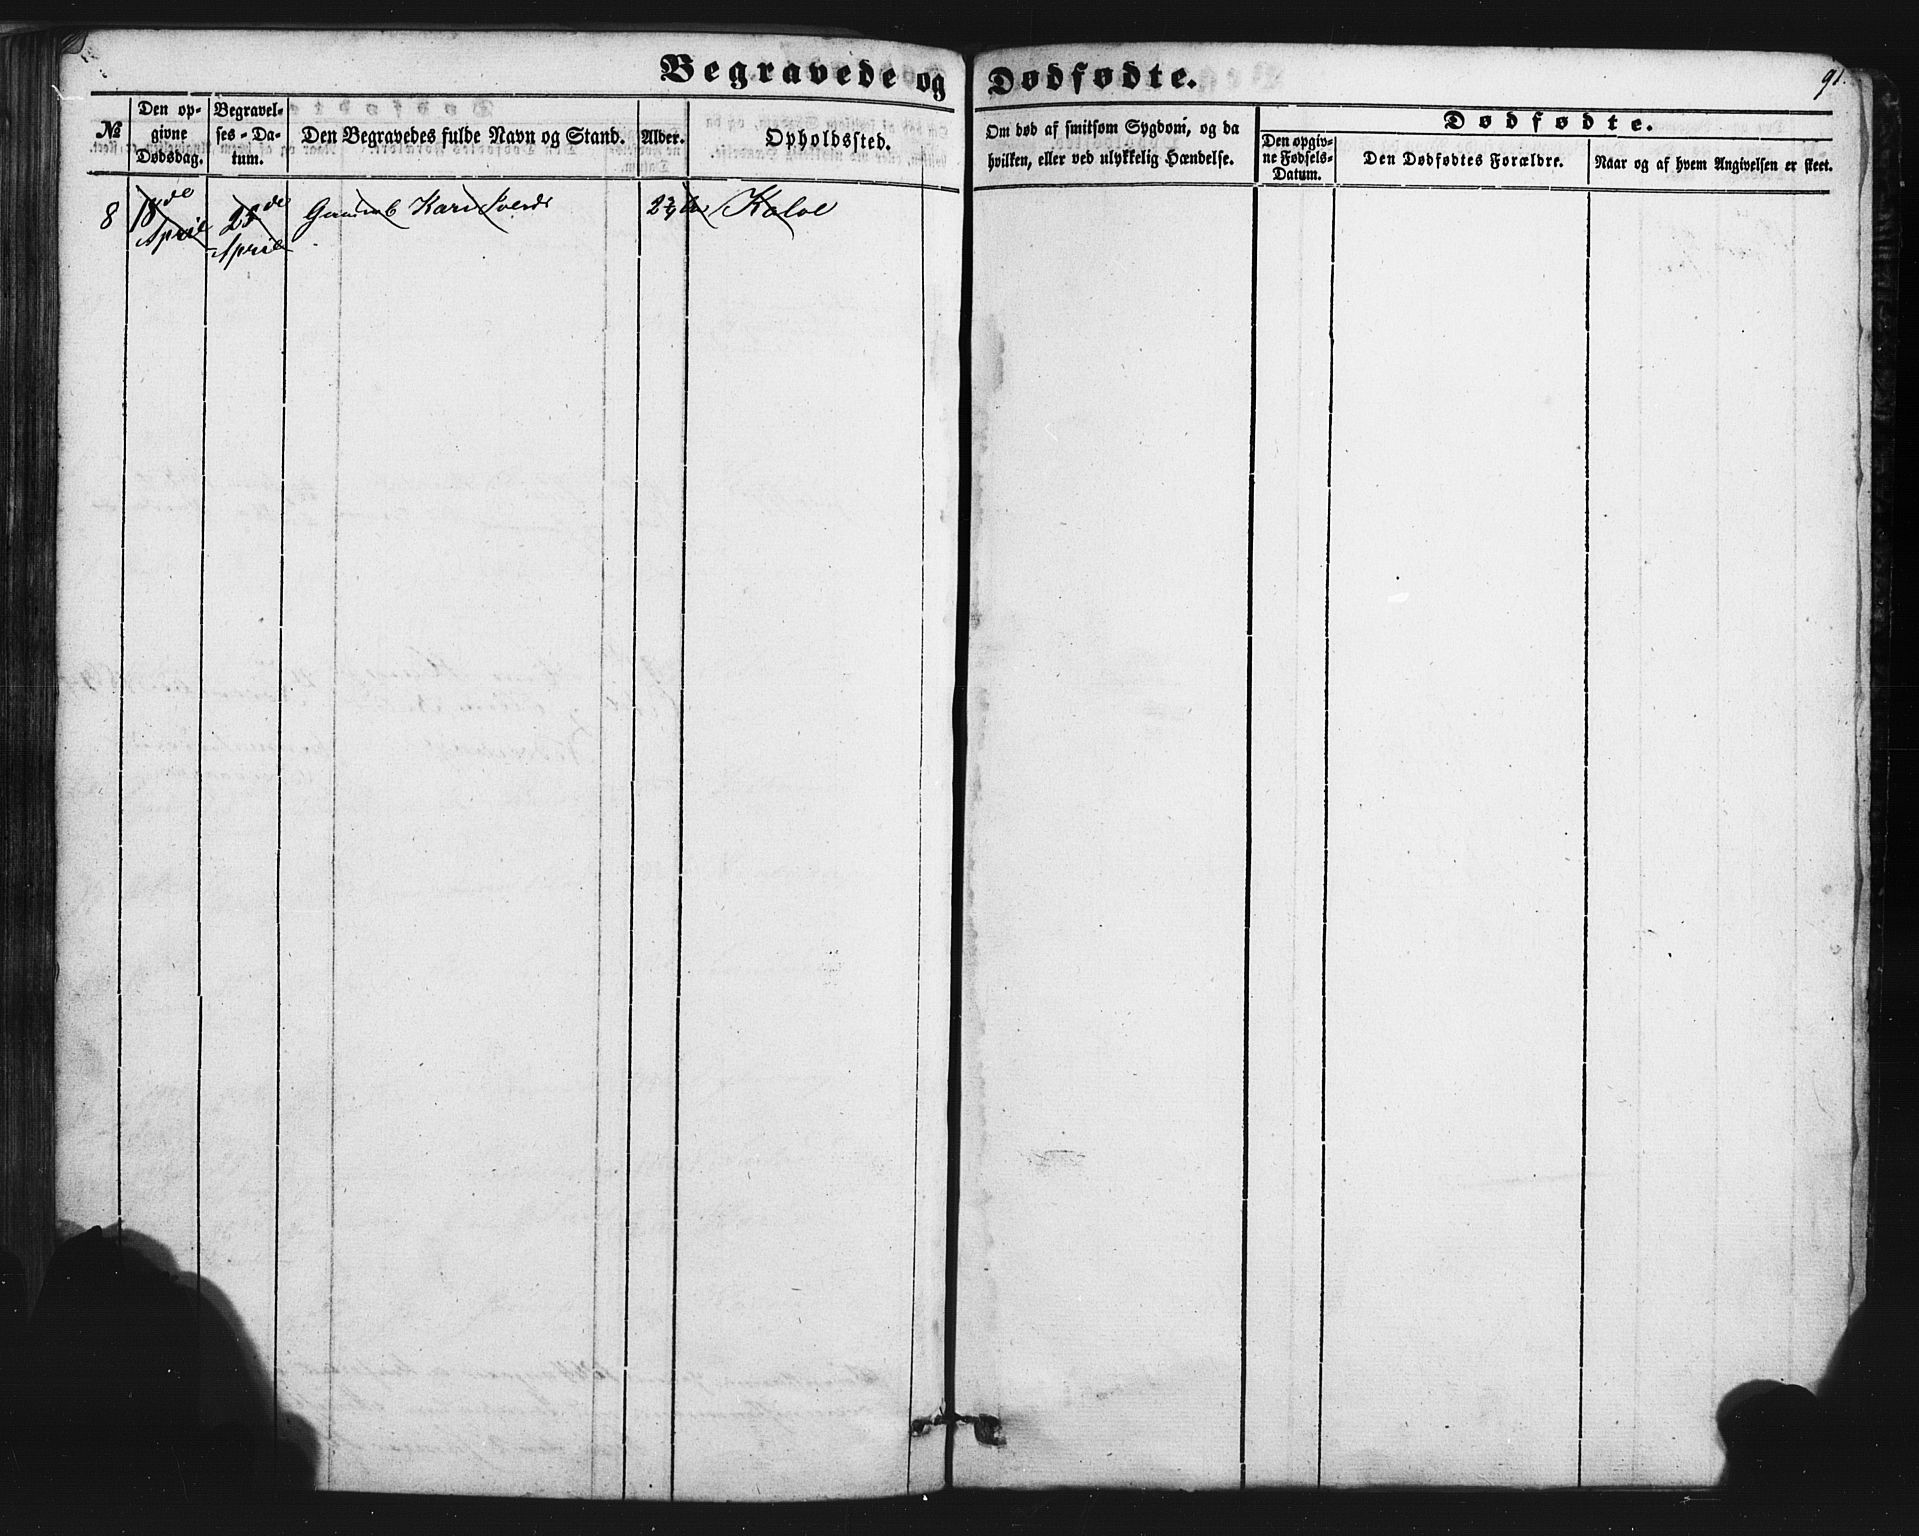 Begravede og Dødfødte.
91.
№
Den op-
givne
Dødsdag.
Begravel-
ses-Da-
tum.
Den Begravedes fulde Navn og Stand.
Alder.
Opholdssted.
Om død af smitsom Sygdom, og da
hvilken, eller ved ulykkelig Hændelse.
Dødfødte.
Den opgiv-
ne Fødsels-
Datum.
Den Dødfødtes Forældre.
Naar og af hvem Angivelsen er skeet.
8
18de
April
25de
April
Kari
Kolve